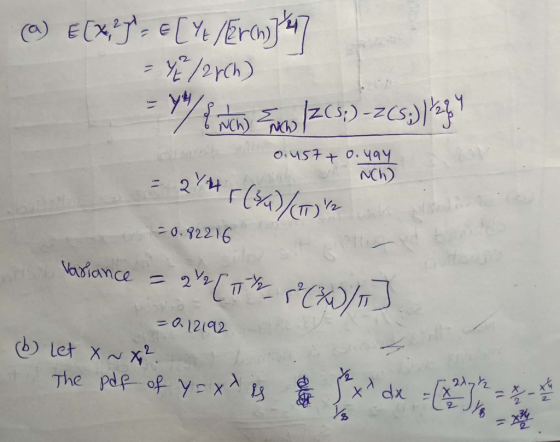 (a) E[x₁²]^λ = E[Y_t/[2r(h)]^1/4]
= Y_t²/2r(h)
= Y⁴/{1/N(h) Σ_N(h) |Z(S_i) - Z(S_j)|^1/2}⁴
0.457 + 0.494/N(h)
= 2^1/4 Γ(3/4)/(π)^1/2
= 0.82216
Variance = 2^1/2 [π^-1/2 - Γ²(3/4)/π]
= 0.12192
(b) Let X ~ x₁².
The pdf of Y = x^λ is ∫_1/8^1/2 x^λ dx = [x^2λ/2]_1/8^1/2 = x/2 - x^1/4/2
= x^3/4/2